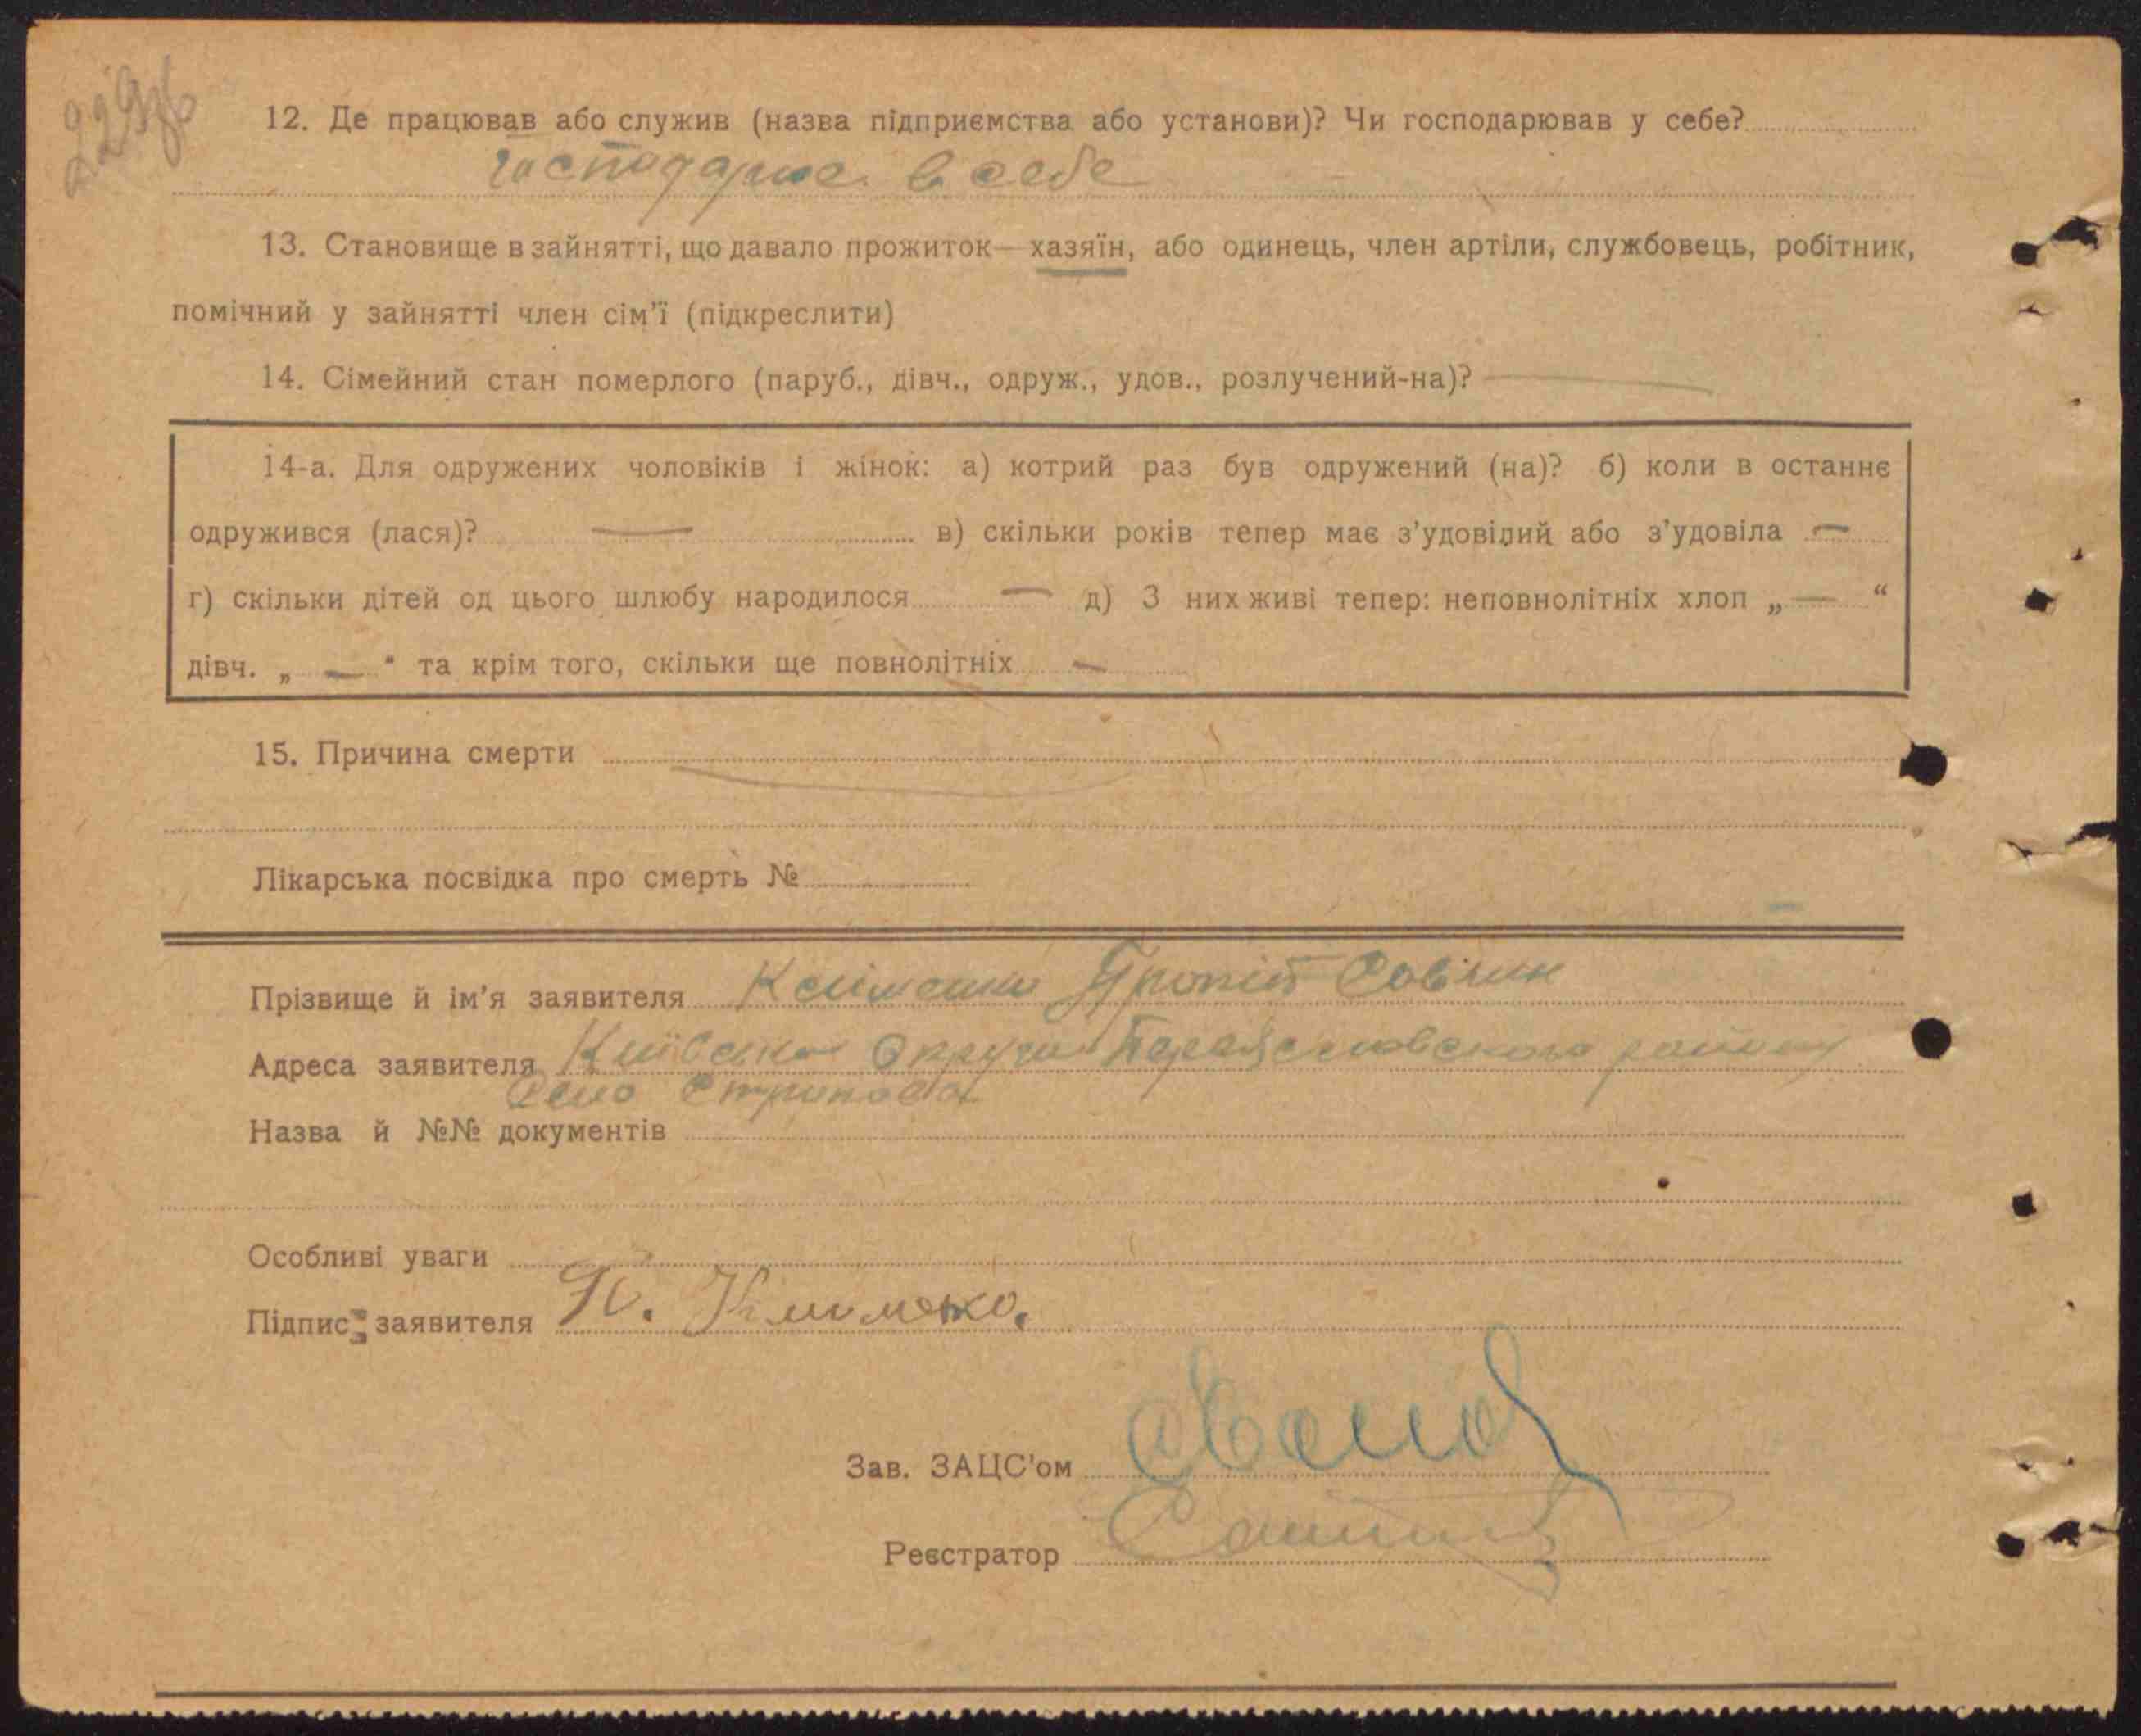 229зв
12. Де працював або служив (назва підприємства або установи)? Чи господарював у себе?
господарює в себе
13. Становище в зайнятті, що давало прожиток—хазяїн, або одинець, член артіли, службовець, робітник,
помічний у зайнятті член сім'ї (підкреслити)
14. Сімейний стан померлого (паруб., дівч., одруж., удов., розлучений-на)? —
14-а. Для одружених чоловіків і жінок: а) котрий раз був одружений (на)? б) коли в останнє
одружився (лася)? — в) скільки років тепер має з'удовілий або з'удовіла —
г) скільки дітей од цього шлюбу народилося — д) З них живі тепер: неповнолітніх хлоп „ — “
дівч. „ — “ та крім того, скільки ще повнолітніх —
15. Причина смерти —
Лікарська посвідка про смерть №
Прізвище й ім'я заявителя
Адреса заявителя Київська Округи району
Село
Назва й №№ документів
Особливі уваги
Підпис заявителя Клименко.
Зав. ЗАЦС'ом
Реєстратор